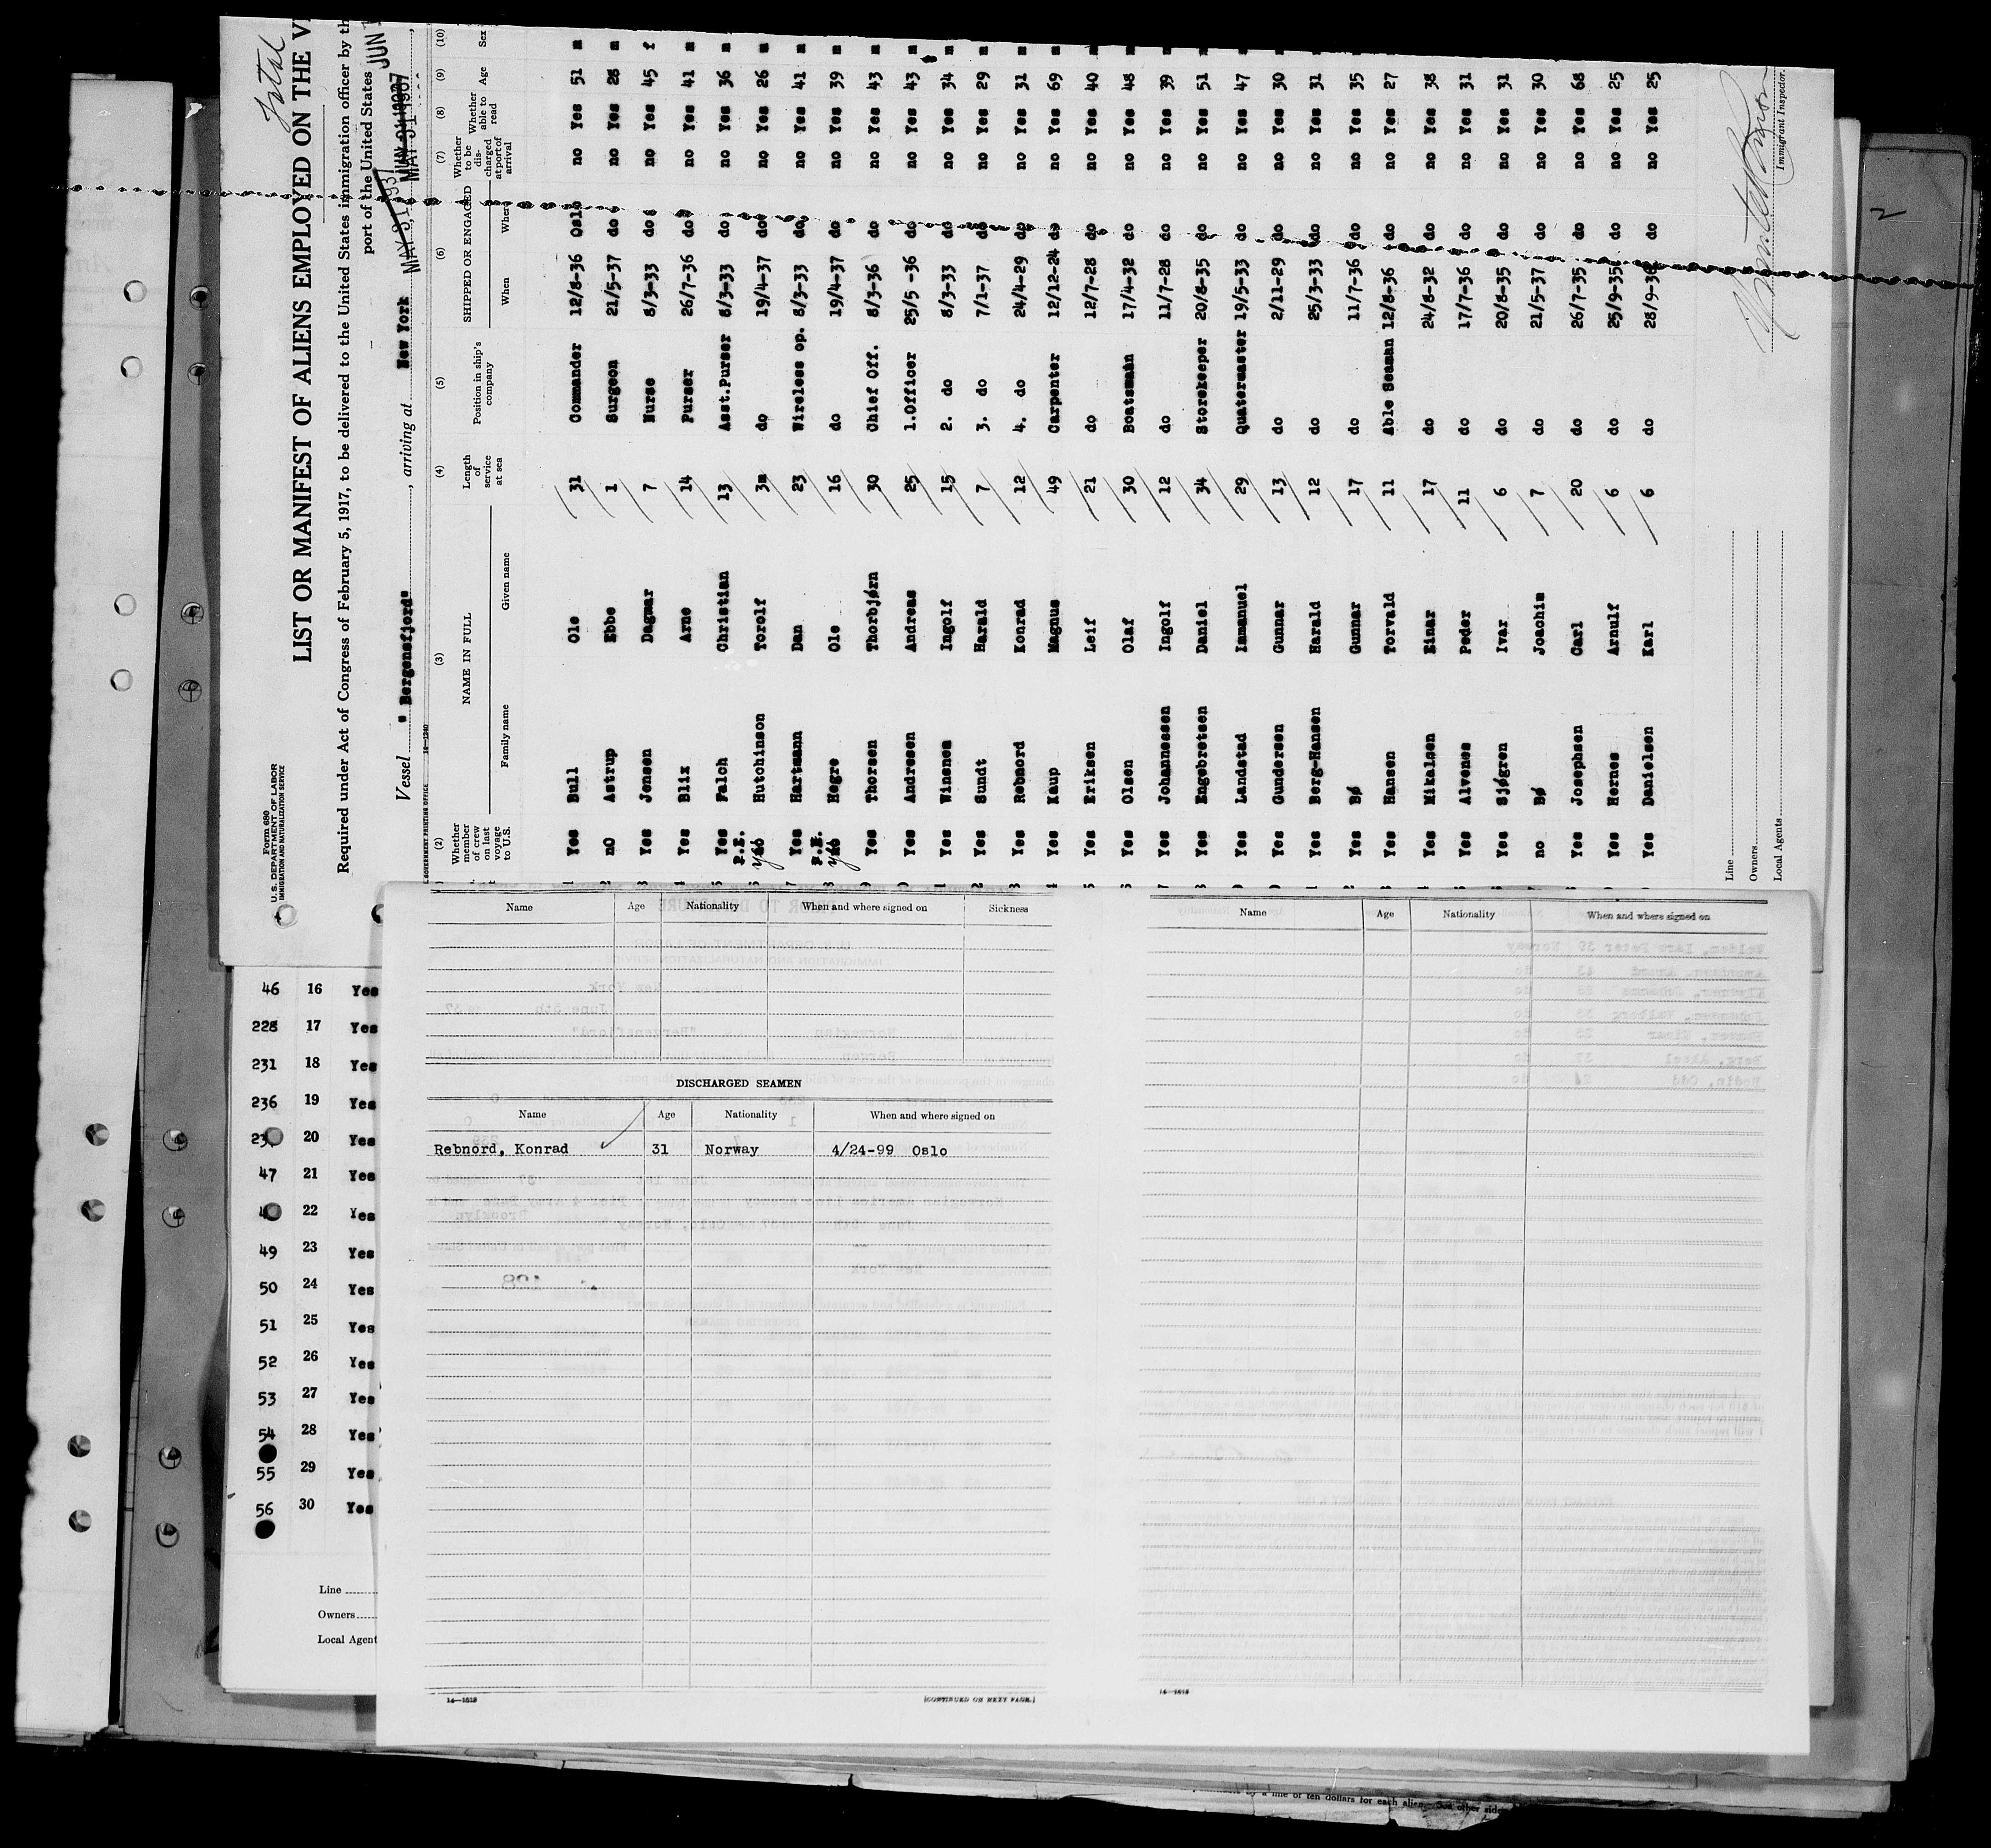 Total
Form 680
U.S. DEPARTMENT OF LABOR
IMMIGRATION AND NATURALIZATION SERVICE
LIST OR MANIFEST OF ALIENS EMPLOYED ON THE V
Required under Act of Congress of February 5, 1917, to be delivered to the United States immigration officer by th
port of the United States JUN
Vessel "Bergensfjord", arriving at New York MAY 31 1937
(2) (3) (4) (5) (6) (7) (8) (9) (10)
Whether member of crew on last voyage to U.S. NAME IN FULL Length of service at sea Position in ship's company SHIPPED OR ENGAGED Whether to be discharged at port of arrival Whether able to read Age Sex
Family name Given name When Where
1 Yes Bull Ole 31 Commander 12/8-36 Oslo no Yes 51 m
2 no Astrup Ebbe 1 Surgeon 21/5-37 do no Yes 28 m
3 Yes Jensen Dagmar 7 Nurse 8/3-33 do no Yes 45 f
4 Yes Blix Arne 14 Purser 26/7-36 do no Yes 41 m
5 Yes Falch Christian 13 Asst.Purser 8/3-33 do no Yes 36 m
6 P.E. yes Hutchinson Torolf 3m do 19/4-37 do no Yes 26 m
7 Yes Hartmann Dan 23 Wireless op. 8/3-33 do no Yes 41 m
8 P.E. yes Hegre Ole 16 do 19/4-37 do no Yes 39 m
9 Yes Thorsen Thorbjørn 30 Chief Off. 8/3-36 do no Yes 43 m
0 Yes Andresen Andreas 25 1.Officer 25/5-36 do no Yes 43 m
1 Yes Winsnes Ingolf 15 2. do 8/3-33 do no Yes 34 m
2 Yes Sundt Harald 7 3. do 7/1-37 do no Yes 29 m
3 Yes Rebnord Konrad 12 4. do 24/4-29 do no Yes 31 m
4 Yes Kaup Magnus 49 Carpenter 12/12-24 do no Yes 69 m
5 Yes Eriksen Leif 21 do 12/7-28 do no Yes 40 m
6 Yes Olsen Olaf 30 Boatsmain 17/4-32 do no Yes 48 m
7 Yes Johannessen Ingolf 12 do 11/7-28 do no Yes 39 m
8 Yes Engebretsen Daniel 34 Storekeeper 20/8-35 do no Yes 51 m
9 Yes Landstad Immanuel 29 Quatermaster 19/5-33 do no Yes 47 m
0 Yes Gundersen Gunnar 13 do 2/11-29 do no Yes 30 m
1 Yes Berg-Hansen Harald 12 do 25/3-33 do no Yes 31 m
2 Yes Bø Gunnar 17 do 11/7-36 do no Yes 35 m
3 Yes Hansen Torvald 11 Able Seaman 12/8-36 do no Yes 27 m
4 Yes Mikalsen Einar 17 do 24/8-32 do no Yes 38 m
5 Yes Alvenes Peder 11 do 17/7-36 do no Yes 31 m
6 Yes Sjøgren Ivar 6 do 20/8-35 do no Yes 31 m
7 no Bø Joachim 7 do 21/5-37 do no Yes 30 m
8 Yes Josephsen Carl 20 do 26/7-35 do no Yes 68 m
9 Yes Hernes Arnulf 6 do 25/9-35 do no Yes 25 m
0 Yes Danielsen Karl 6 do 28/9-36 do no Yes 25 m
Line
Owners
Local Agents
Immigrant Inspector.
2
46 16 Yes
228 17 Yes
231 18 Yes
236 19 Yes
20 Yes
47 21 Yes
22 Yes
49 23 Yes
50 24 Yes
51 25 Yes
52 26 Yes
53 27 Yes
54 28 Yes
55 29 Yes
56 30 Yes
Line
Owners
Local Agent
Name Age Nationality When and where signed on Sickness
DISCHARGED SEAMEN
Name Age Nationality When and where signed on
Rebnord, Konrad 31 Norway 4/24-99 Oslo
14—1518 [CONTINUED ON NEXT PAGE.]
Name Age Nationality When and where signed on
14—1518
by a fine of ten dollars for each alien. See other side